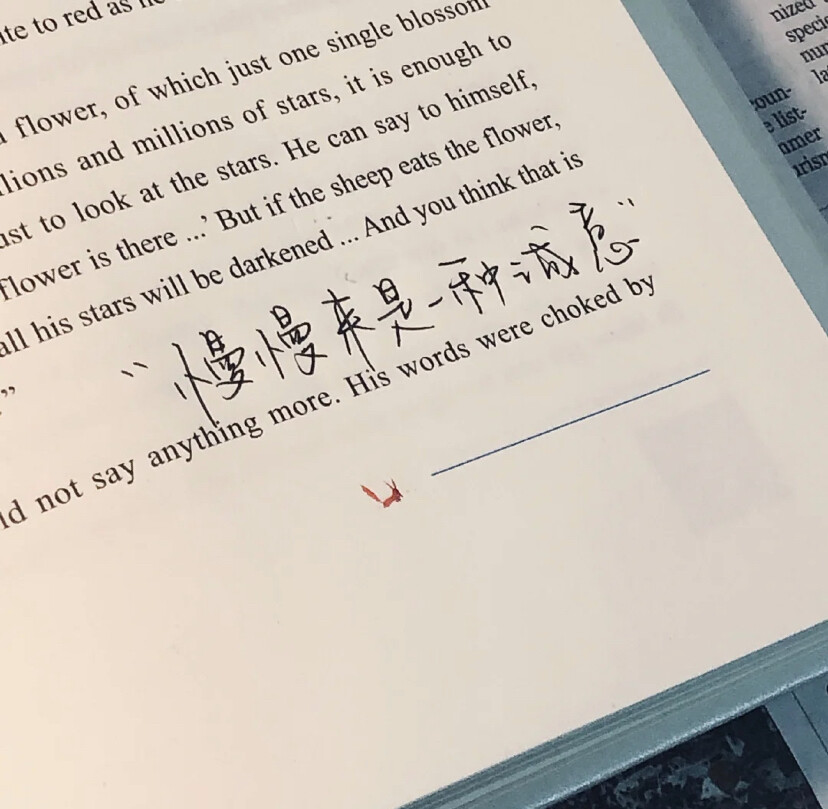 ite to red as
flower, of which just one single blossom
lions and millions of stars, it is enough to
ust to look at the stars. He can say to himself,
flower is there ...’ But if the sheep eats the flower,
all his stars will be darkened ... And you think that is
“慢慢来是一种诚意”
”
ld not say anything more. His words were choked by
nized
speci
num
la
oun-
e list-
mmer
urism